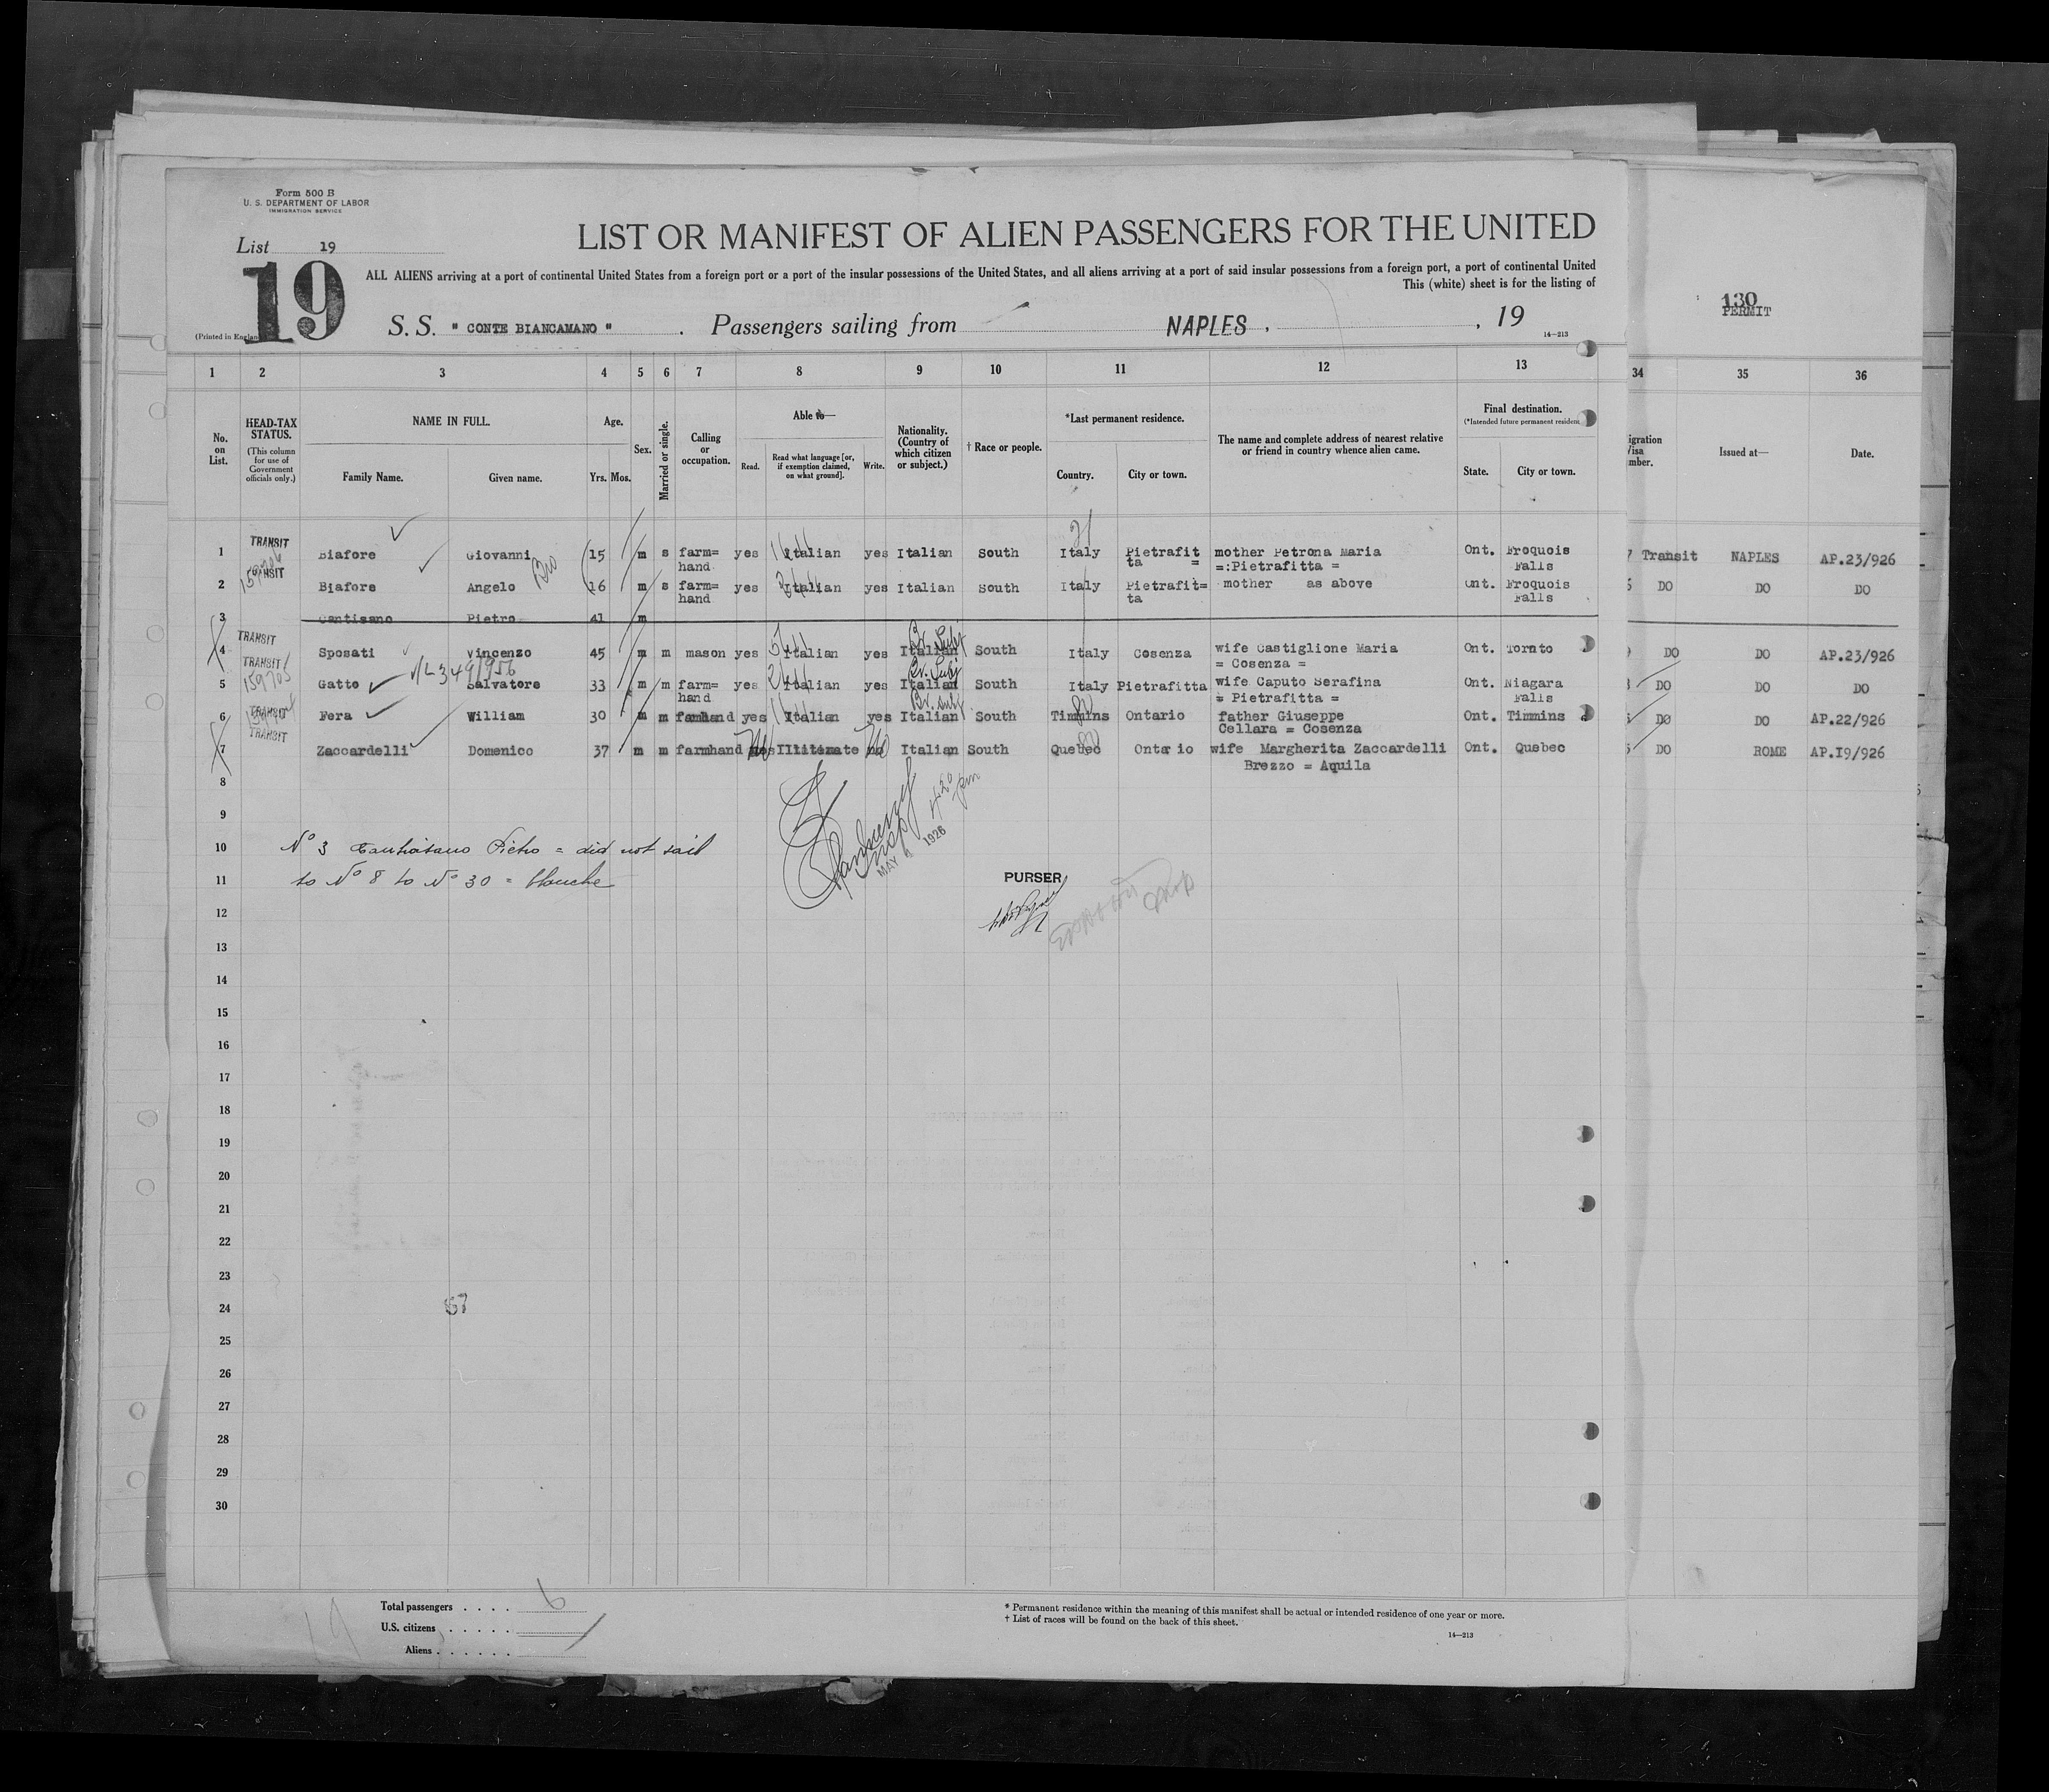 Form 500 B
U. S. DEPARTMENT OF LABOR
IMMIGRATION SERVICE
List 19
19
LIST OR MANIFEST OF ALIEN PASSENGERS FOR THE UNITED
ALL ALIENS arriving at a port of continental United States from a foreign port or a port of the insular possessions of the United States, and all aliens arriving at a port of said insular possessions from a foreign port, a port of continental United
This (white) sheet is for the listing of
130
PERMIT
(Printed in England
S. S. " CONTE BIANCAMANO " . Passengers sailing from NAPLES . , 19
14—213
1 2 3 4 5 6 7 8 9 10 11 12 13 34 35 36
No. on List.
HEAD-TAX STATUS.
(This column for use of Government officials only.)
NAME IN FULL.
Family Name. Given name.
Age.
Yrs. Mos.
Sex.
Married or single.
Calling or occupation.
Able to—
Read. Read what language [or, if exemption claimed, on what ground]. Write.
Nationality. (Country of which citizen or subject.)
† Race or people.
*Last permanent residence.
Country. City or town.
The name and complete address of nearest relative or friend in country whence alien came.
Final destination.
(*Intended future permanent residen
State. City or town.
igration
Visa
mber.
Issued at—
Date.
TRANSIT
1 Biafore Giovanni 15 m s farm= yes Italian yes Italian South Italy Pietrafit mother Petrona Maria Ont. Froquois 7 Transit NAPLES AP.23/926
hand ta = =:Pietrafitta = Falls
2 Biafore Angelo Bro 16 m s farm= yes Italian yes Italian South Italy Pietrafit= mother as above Ont. Froquois DO DO DO
hand ta Falls
3 Cantisano Pietro 41 m
TRANSIT
4 Sposati Vincenzo 45 m m mason yes Italian yes Italian South Italy Cosenza wife Castiglione Maria Ont. Tornto DO DO AP.23/926
= Cosenza =
TRANSIT
159705
5 Gatto Salvatore 33 m m farm= yes Italian yes Italian South Italy Pietrafitta wife Caputo Serafina Ont. Niagara DO DO DO
hand = Pietrafitta = Falls
TRANSIT
6 Fera William 30 m m famhand yes Italian yes Italian South Timmins Ontario father Giuseppe Ont. Timmins DO DO AP.22/926
Cellara = Cosenza
TRANSIT
7 Zaccardelli Domenico 37 m m farmhand Illiterate no Italian South Quebec Ontario wife Margherita Zaccardelli Ont. Quebec DO ROME AP.19/926
Brezzo = Aquila
8
9
10 N° 3 Cantisano Pietro = did not sail
11 to N° 8 to N° 30 = blanche
MAY 1926
PURSER
12
13
14
15
16
17
18
19
20
21
22
23
24
25
26
27
28
29
30
Total passengers . . . . 6
U.S. citizens . . . . .
Aliens . . . . . .
* Permanent residence within the meaning of this manifest shall be actual or intended residence of one year or more.
† List of races will be found on the back of this sheet.
14—213